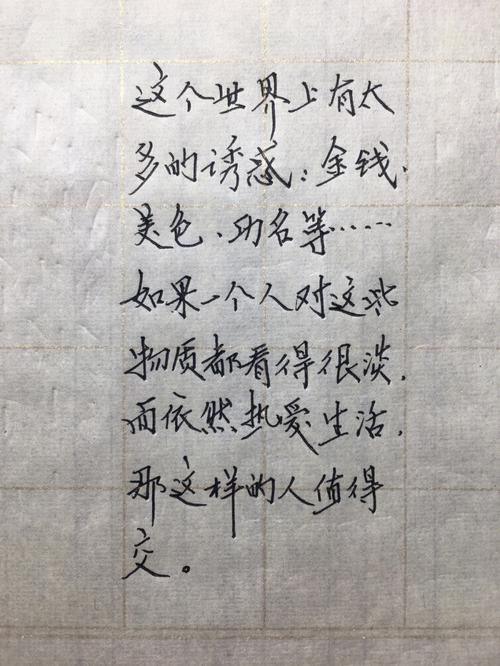 这个世界上有太
多的诱惑：金钱、
美色、功名等……
如果一个人对这些
物质都看得很淡，
而依然热爱生活，
那这样的人值得
交。